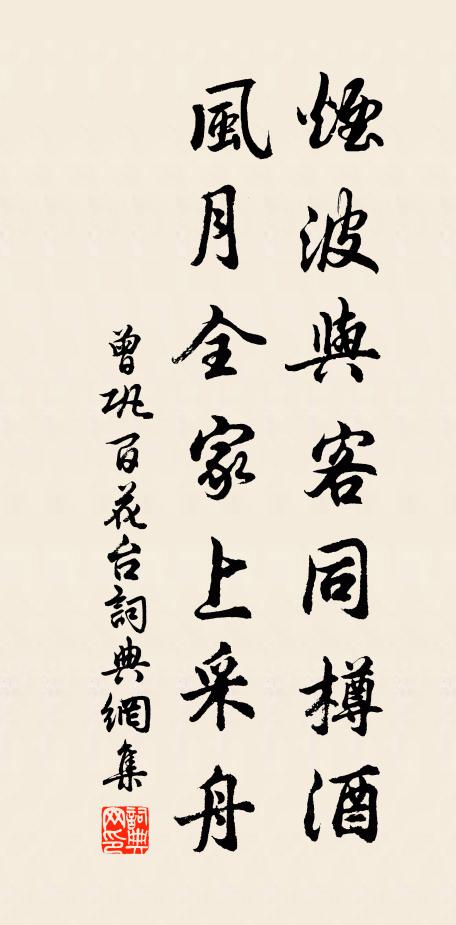 煙波與客同樽酒
風月全家上采舟
曾巩百花台詞典網集
詞典網印